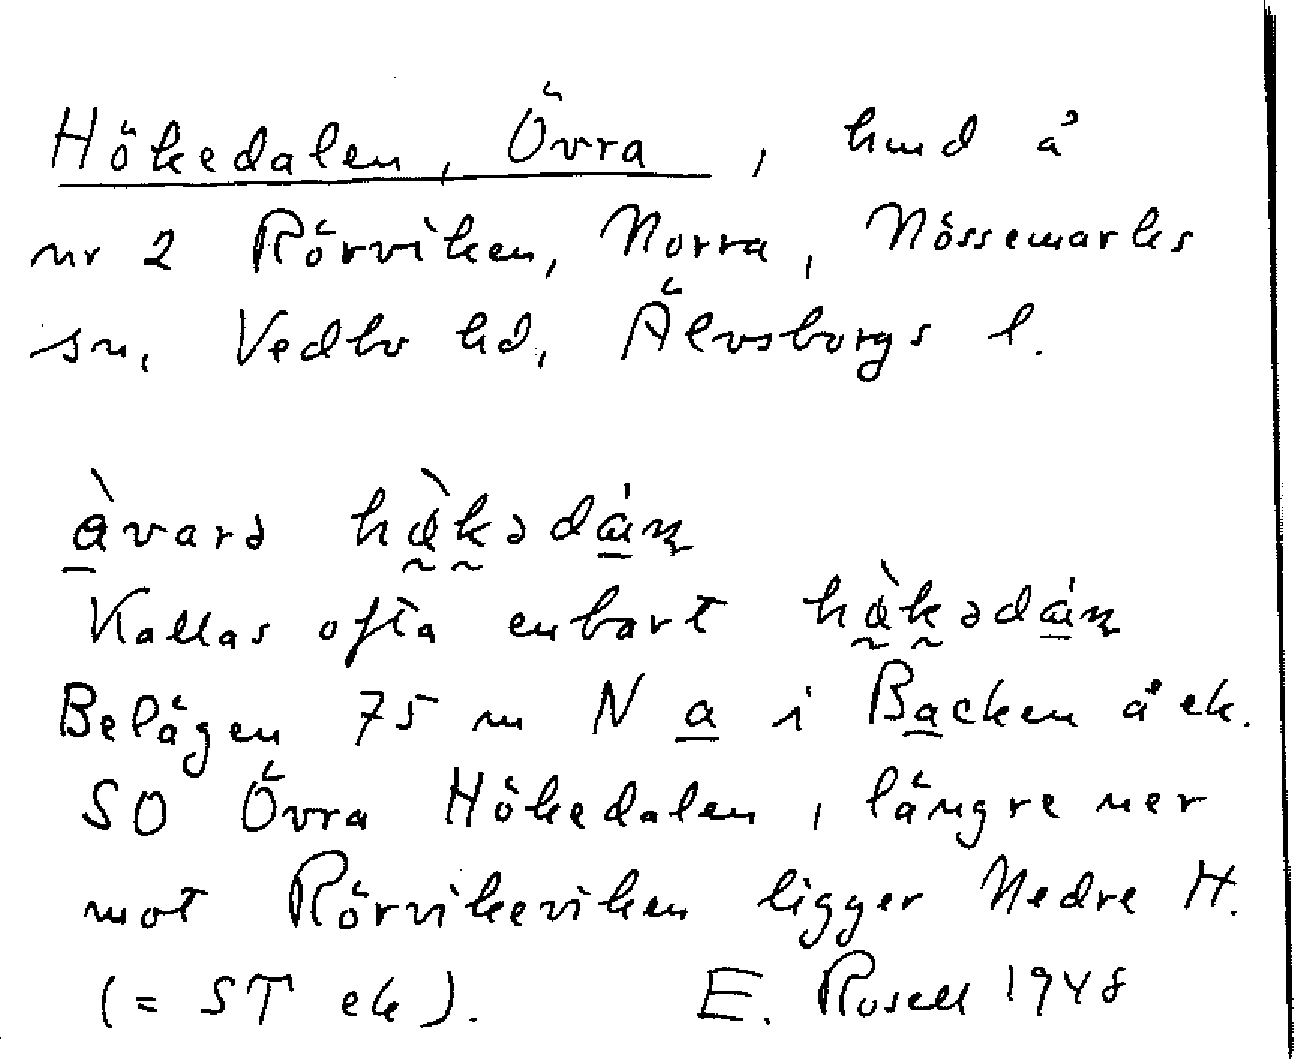 Hökedalen, Övra, hmd å
nr 2 Rörviken, Norra, Nössemarks
sn, Vedbo hd, Älvsborgs l.
Kallas ofta enbart
Belägen 75 m N a i Backen å ek.
SO Övra Hökedalen, längre ner
mot Rörvikeviken ligger Nedre H.
(= ST ek). E. Rosell 1948